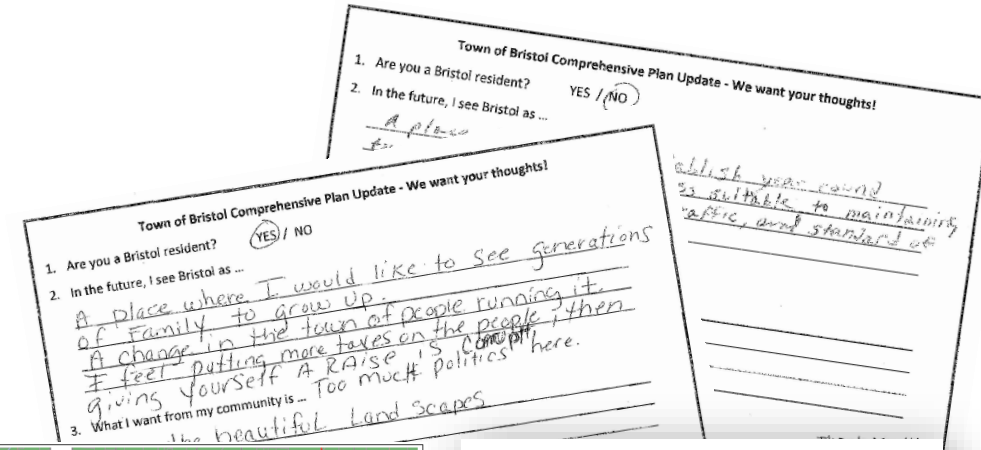 Town of Bristol Comprehensive Plan Update - We want your thoughts!
1. Are you a Bristol resident? YES / NO
2. In the future, I see Bristol as ...
A place
ablish year round
es suitable to maintaining
raffic, and standard of
Town of Bristol Comprehensive Plan Update - We want your thoughts!
1. Are you a Bristol resident? YES / NO
2. In the future, I see Bristol as ...
A place where I would like to see generations
of Family to grow up.
A change in the town of people running it.
I feel putting more taxes on the people, then
giving yourself A RAise is corrupt!
3. What I want from my community is ... Too much politics here.
the beautiful Landscapes